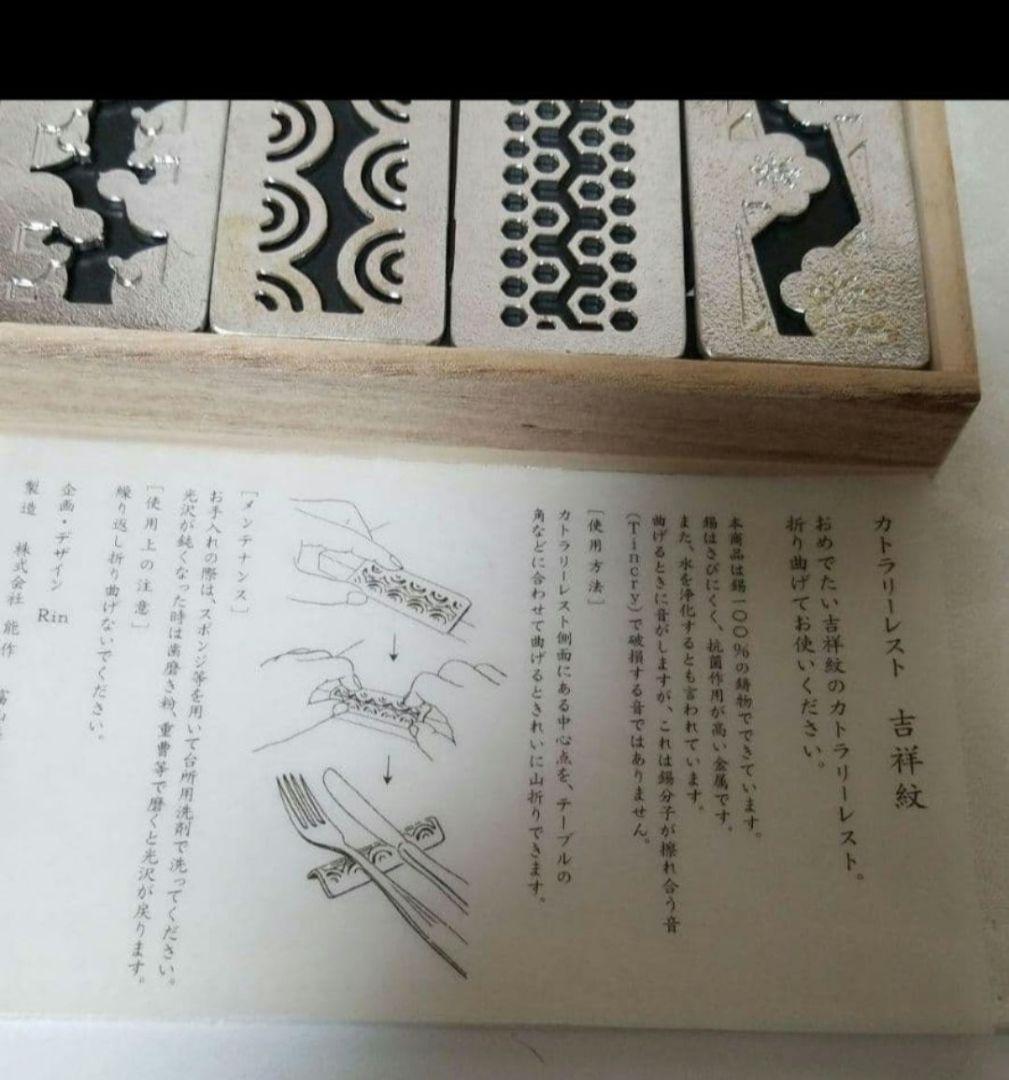 カトラリーレスト 吉祥紋
おめでたい吉祥紋のカトラリーレスト。
折り曲げてお使いください。
本商品は錫一〇〇%の鋳物でできています。
錫はさびにくく、抗菌作用が高い金属です。
また、水を浄化するとも言われています。
曲げるときに音がしますが、これは錫分子が擦れ合う音
(Tincry)で破損する音ではありません。
[使用方法]
カトラリーレスト側面にある中心点を、テーブルの
角などに合わせて曲げるときれいに山折りできます。
[メンテナンス]
お手入れの際は、スポンジ等を用いて台所用洗剤で洗ってください。
光沢が鈍くなった時は歯磨き粉、重曹等で磨くと光沢が戻ります。
[使用上の注意]
繰り返し折り曲げないでください。
企画・デザイン Rin
製造 株式会社 能作